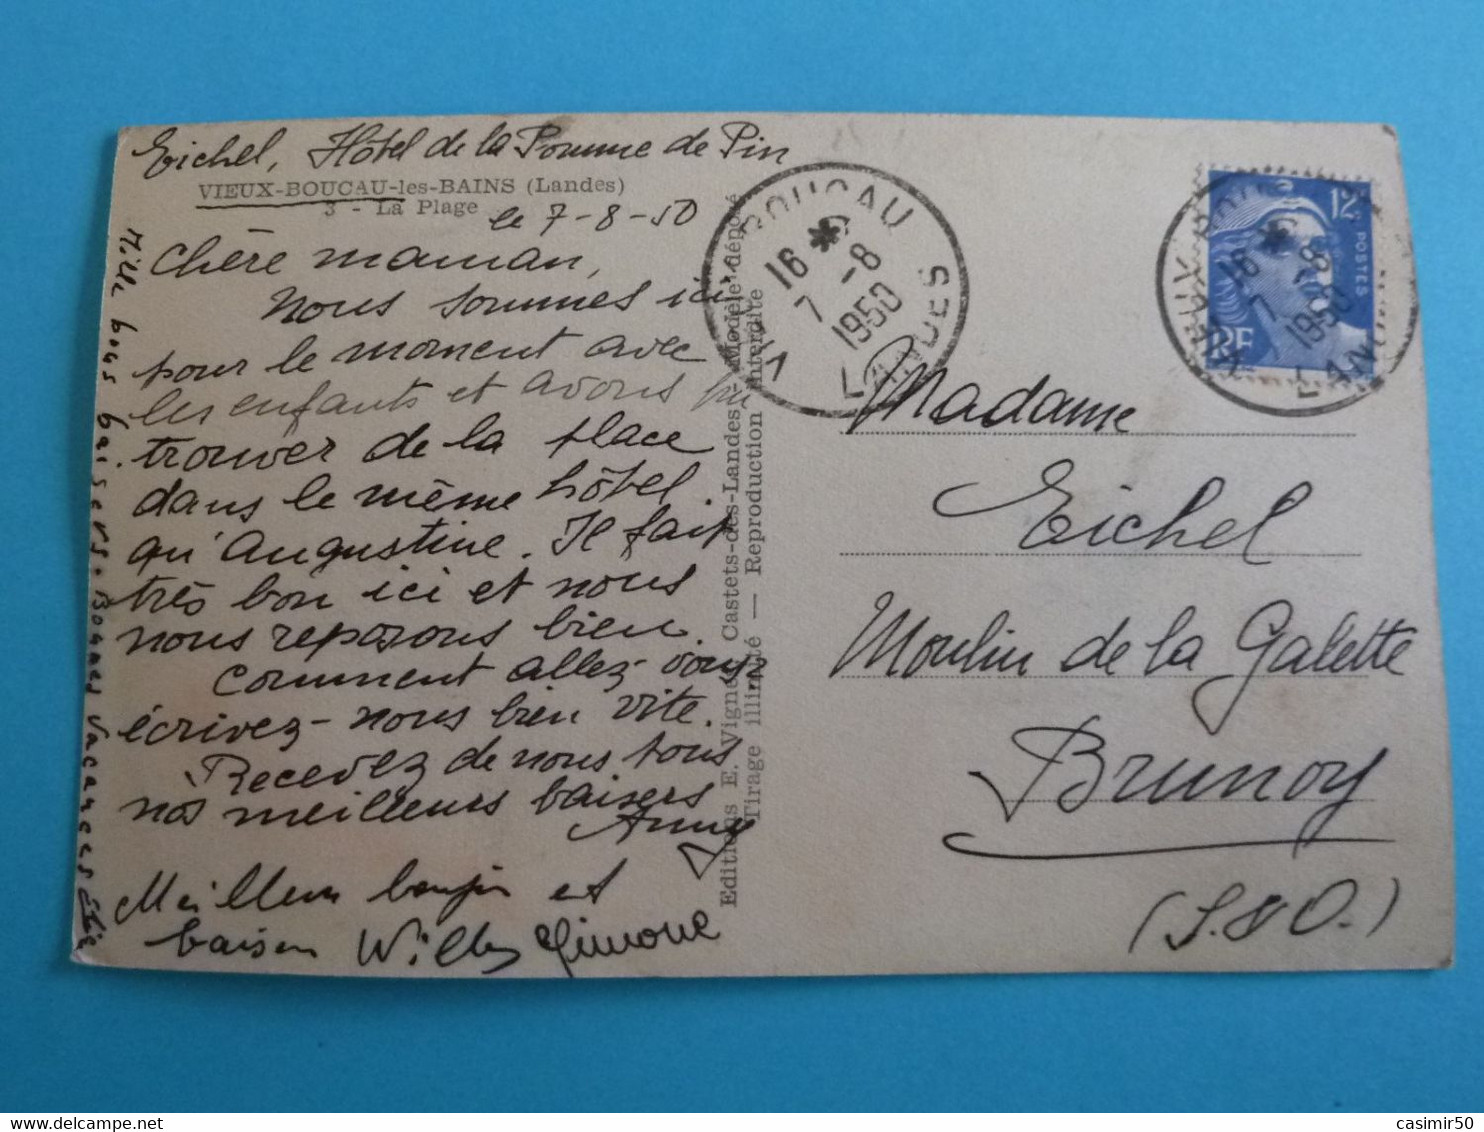 Eichel, Hôtel de la Pomme de Pin
VIEUX-BOUCAU-les-BAINS (Landes)
3 - La Plage
le 7-8-50
Chère maman,
nous sommes ici
pour le moment avec
les enfants et avons pu
trouver de la place
dans le même hôtel
qu'Augustine. Il fait
très bon ici et nous
nous reposons bien.
Comment allez-vous
écrivez-nous bien vite.
Recevez de nous tous
nos meilleurs baisers
Anny
Meilleur bonjour et
baisers Willy Simone
Mille bons baisers. Bonnes vacances
Editions E. Vignes, Castets-des-Landes - Modèle déposé
Tirage illimité — Reproduction interdite
VIEUX BOUCAU
16 *
7 -8
1950
LANDES
12F
POSTES
RF
VIEUX BOUCAU
16 *
7 -8
1950
LANDES
Madame
Eichel
Moulin de la Galette
Brunoy
(S. & O.)
casimir50